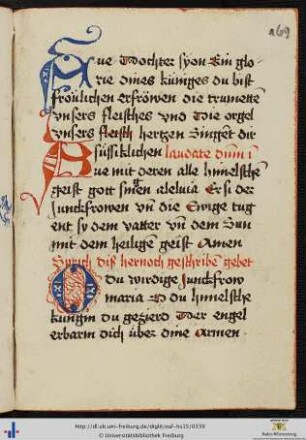 269
Aue Tochter syon Ein glo-
rie dines küniges du bist
frölichen erfröwen die trumetten
vnsers fleisches vnd Die orgel
vnsers fleisch hertzen Singet dir
süssiklichen laudate dnm i
Aue mit deren alle himelsche
geist gott sing aleluia Er si der
Junckfrowen vn die Ewige tug
ent sy dem vatter vn dem Sun
mit dem heilige geist Amen
Sprich dis hernoch geschribe gebet
O du wirdige junckfrow
maria O du himelsche
kungin du gezierd Der engel
erbarm dich über dine Armen
http://dl.ub.uni-freiburg.de/diglit/saf-hs15/0539
© Universitätsbibliothek Freiburg